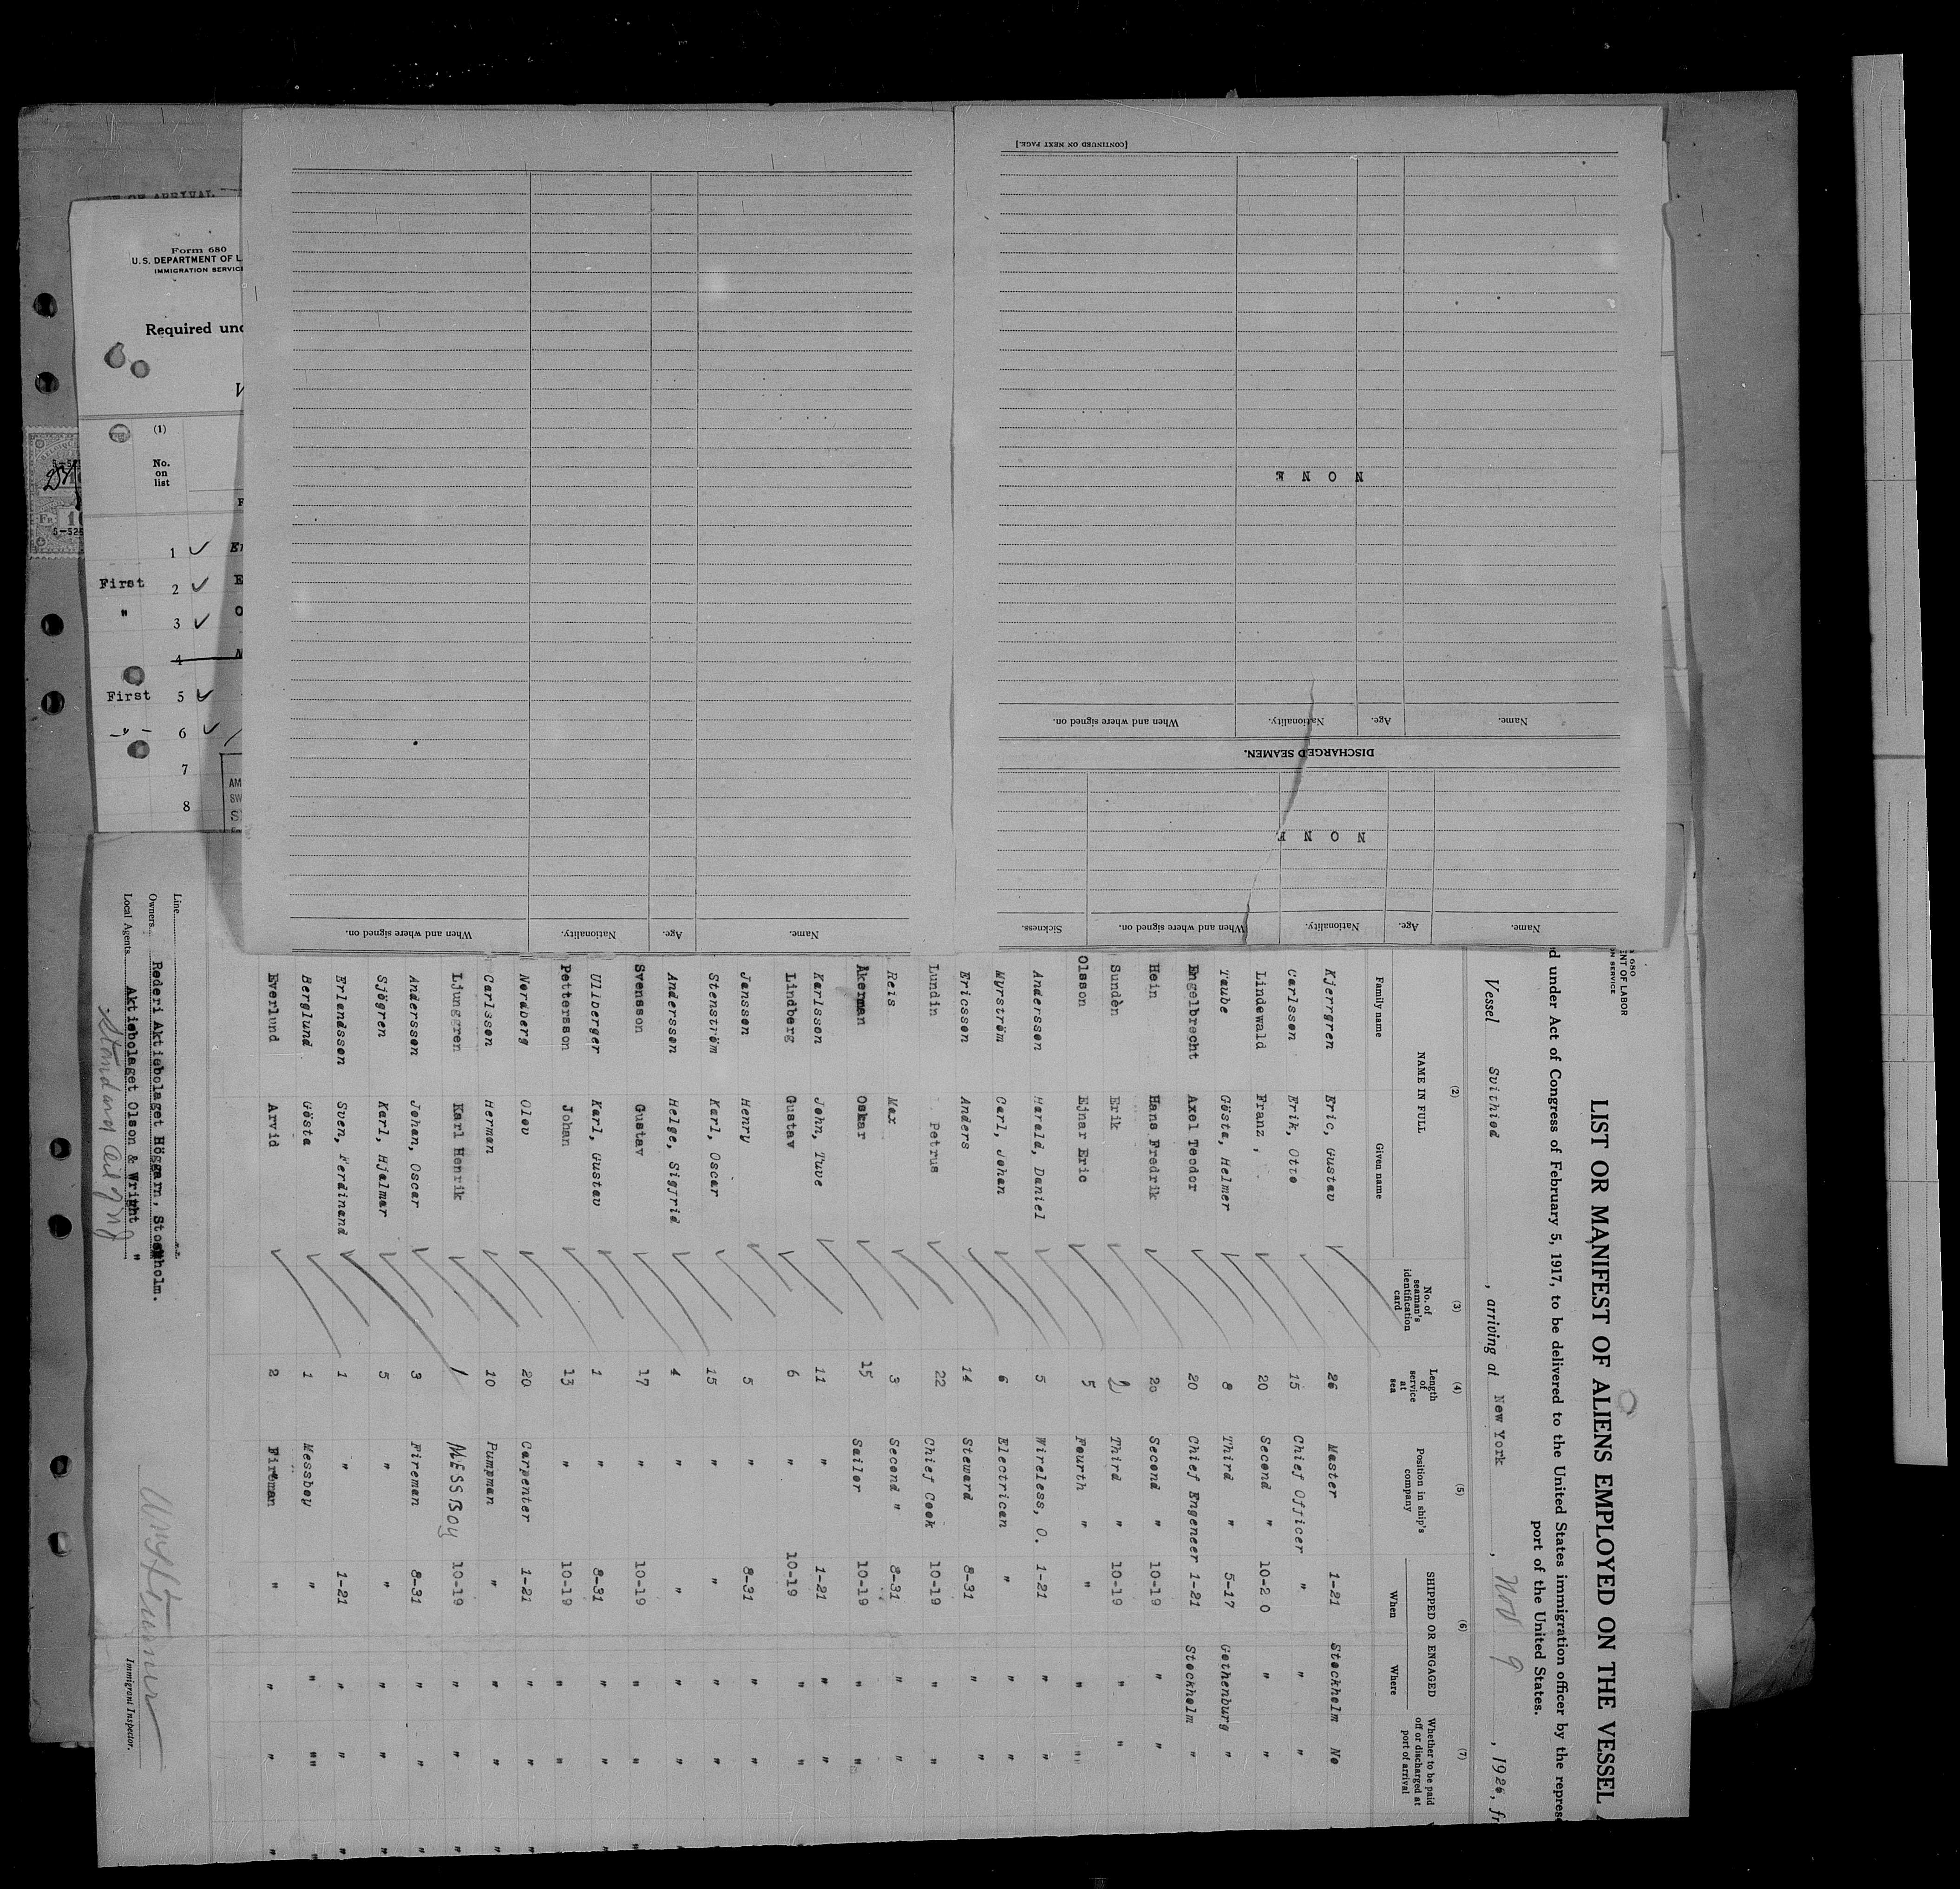 OF ARRIVAL
Form 680
U.S. DEPARTMENT OF L
IMMIGRATION SERVIC
Required und
(1)
No.
on
list
1
First 2
" 3
4
First 5
-"- 6
7
8
AM
SW
[CONTINUED ON NEXT PAGE.]
N O N E
Name. Age. Nationality. When and where signed on.
DISCHARGED SEAMEN.
N O N E
Name. Age. Nationality. When and where signed on. Sickness.
Name. Age. Nationality. When and where signed on.
680
NT OF LABOR
ON SERVICE
LIST OR MANIFEST OF ALIENS EMPLOYED ON THE VESSEL
d under Act of Congress of February 5, 1917, to be delivered to the United States immigration officer by the repres
port of the United States.
Vessel Svithiod , arriving at New York , Nov 9 , 1926, fr
(2) (3) (4) (5) (6) (7)
NAME IN FULL
Family name Given name
No. of seaman's identification card
Length of service at sea
Position in ship's company
SHIPPED OR ENGAGED
When Where
Whether to be paid off or discharged at port of arrival
Kjerrgren Eric, Gustav 26 Master 1-21 Stockholm No
Carlsson Erik, Otto 15 Chief Officer " " "
Lindewald Franz, 20 Second " 10-20 " "
Taube Gösta, Helmer 8 Third " 5-17 Gothenburg "
Engelbrecht Axel Teodor 20 Chief Engeneer 1-21 Stockholm "
Hein Hans Fredrik 20 Second " 10-19 " "
Sundén Erik Third " 10-19 " "
Olsson Ejnar Eric 5 Fourth " " " "
Andersson Harald, Daniel 5 Wireless, O. 1-21 " "
Myrström Carl, Johan 6 Electrican " " "
Ericsson Anders 14 Steward 8-31 " "
Lundin Petrus 22 Chief Cook 10-19 " "
Reis Max 3 Second " 8-31 " "
Åkerman Oskar 15 Sailor 10-19 " "
Karlsson John, Tuve 11 " 1-21 " "
Lindberg Gustav 6 " 10-19 " "
Jansson Henry 5 " 8-31 " "
Stenström Karl, Oscar 15 " " " "
Andersson Helge, Sigfrid 4 " " " "
Svensson Gustav 17 " 10-19 " "
Ullberger Karl, Gustav 1 " 8-31 " "
Pettersson Johan 13 " 10-19 " "
Nordberg Olov 20 Carpenter 1-21 " "
Carlsson Herman 10 Pumpman " " "
Ljunggren Karl Henrik 1 MESSBoy 10-19 " "
Andersson Johan, Oscar 3 Fireman 8-31 " "
Sjögren Karl, Hjalmar 5 " " " "
Erlandsson Sven, Ferdinand 1 " 1-21 " "
Berglund Gösta 1 Messboy " " "
Everlund Arvid 2 Fireman " " "
Line
Owners Rederi Aktiebolaget Höggarn, Stockholm.
Local Agents Aktiebolaget Olson & Wright "
Standard Oil of NJ
Immigrant Inspector.